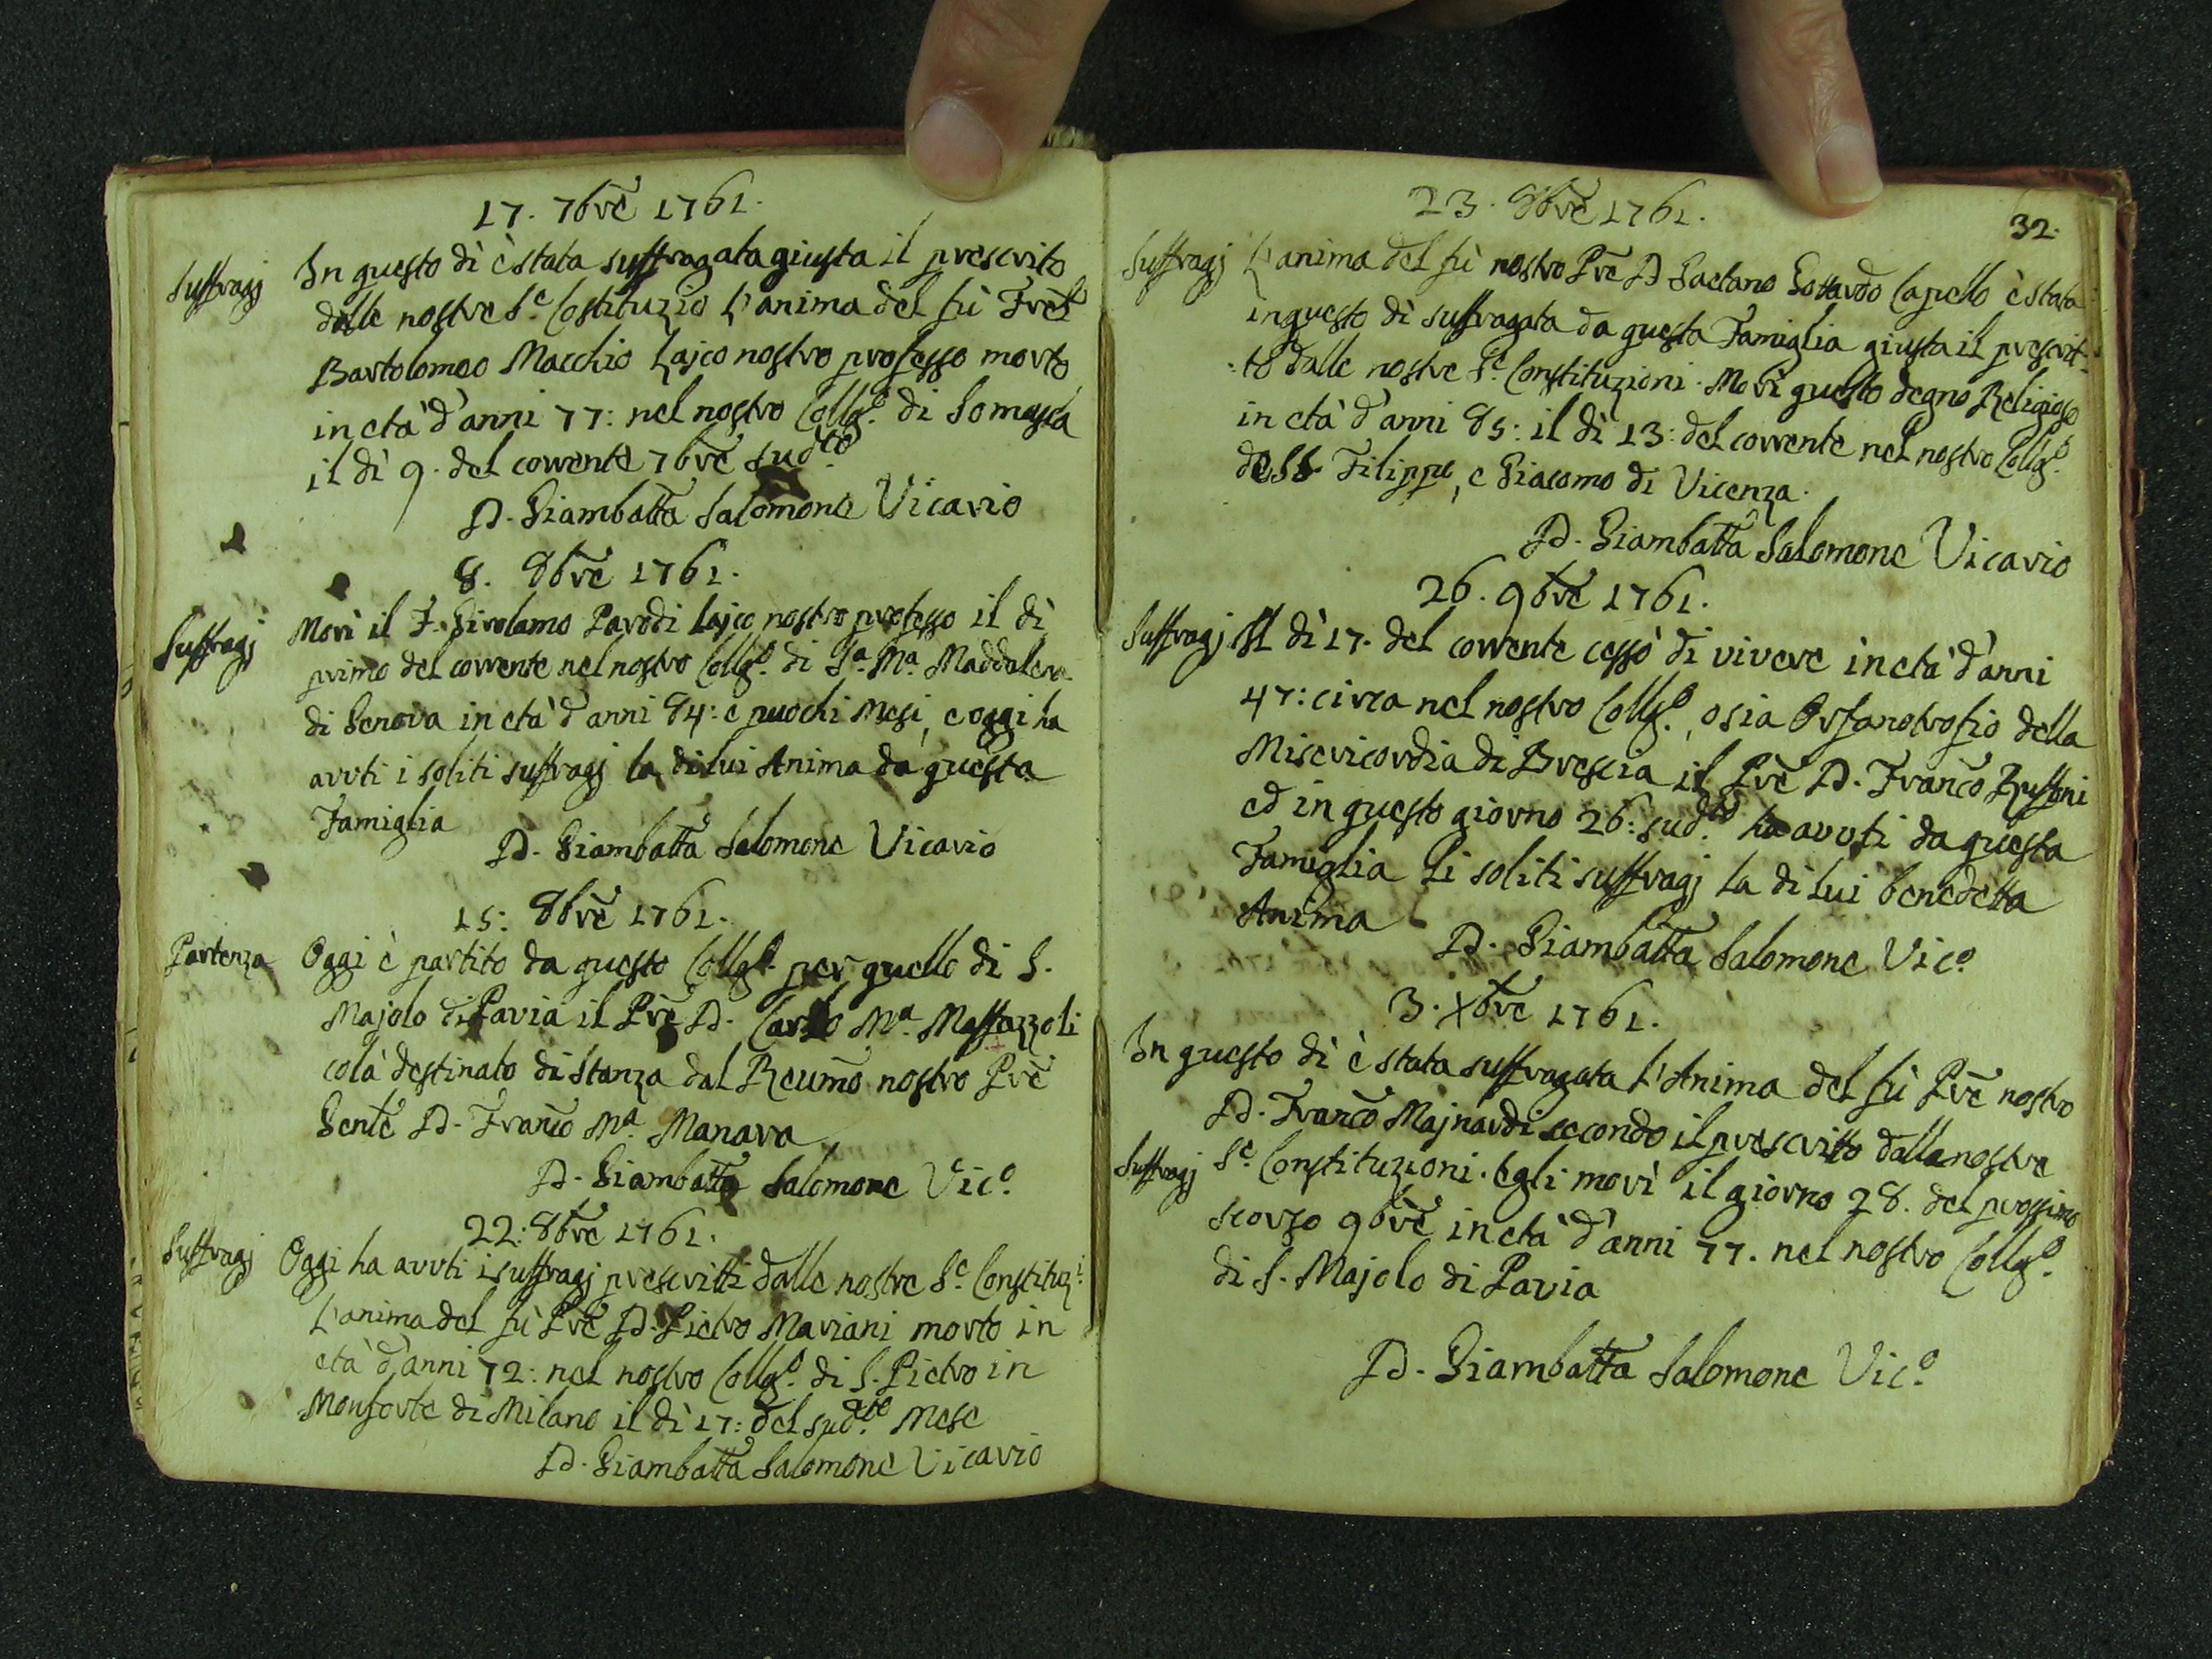 17. 7bre 1761.
Suffragj In questo dì è stata suffragata giusta il prescrito
dalle nostre S.e Costituzio l'anima del fù Frel
Bartolomeo Macchio Lajco nostro professo morto
in età d'anni 77: nel nostro Collg.o di Somasca
il dì 9. del corrente 7bre sud.to
D. Giambatta Salomone Vicario
8. 8bre 1761.
Suffragj Morì il F. Girolamo Parodi Lajco nostro professo il dì
primo del corrente nel nostro Collg.o di S.a M.a Maddalena
di Genova in età d'anni 84: e puochi mesi, e oggi ha
avuti i soliti suffragj la di lui Anima da questa
Famiglia
D. Giambatta Salomone Vicario
15: 8bre 1761.
Partenza Oggi è partito da questo Collg.o per quello di S.
Majolo di Pavia il Pre D. Carlo M.a Massazzoli
colà destinato di stanza dal Reumo nostro Pre
Genle D. Franco M.a Manara
D. Giambatta Salomone Vic.o
22: 8bre 1761.
Suffragj Oggi ha avuti i suffragj prescritti dalle nostre S.e Constituz.i
L'anima del fù Pre D. Pietro Mariani morto in
età d'anni 72: nel nostro Collg.o di S. Pietro in
Monforte di Milano il dì 17: del sud.to Mese
D. Giambatta Salomone Vicario
32.
23. 8bre 1761.
Suffragj L'anima del fù nostro Pre D Gaetano Gottardo Capello è stata
in questo dì suffragata da questa Famiglia giusta il prescrit-
to dalle nostre S.e Constituzioni. Morì questo degno Religioso
in età d'anni 85: il dì 13: del corrente nel nostro Collg.o
de SS. Filippo, e Giacomo di Vicenza.
D. Giambatta Salomone Vicario
26. 9bre 1761.
Suffragj Il dì 17. del corrente cessò di vivere in età d'anni
47: circa nel nostro Collg.o, osia Orfanotrofio della
Misericordia di Brescia il Pre D. Franco Ruffoni
ed in questo giorno 26: sud.to ha avuti da questa
Famiglia li soliti suffragj la di lui benedetta
Anima
D. Giambatta Salomone Vic.o
3. Xbre 1761.
In questo dì è stata suffragata l'Anima del fù Pre nostro
D. Franco Majnardi secondo il prescritto dalle nostre
Suffragj S.e Constituzioni. Egli morì il giorno 28. del prossimo
scorso 9bre in età d'anni 77. nel nostro Collg.o
di S. Majolo di Pavia
D. Giambatta Salomone Vic.o